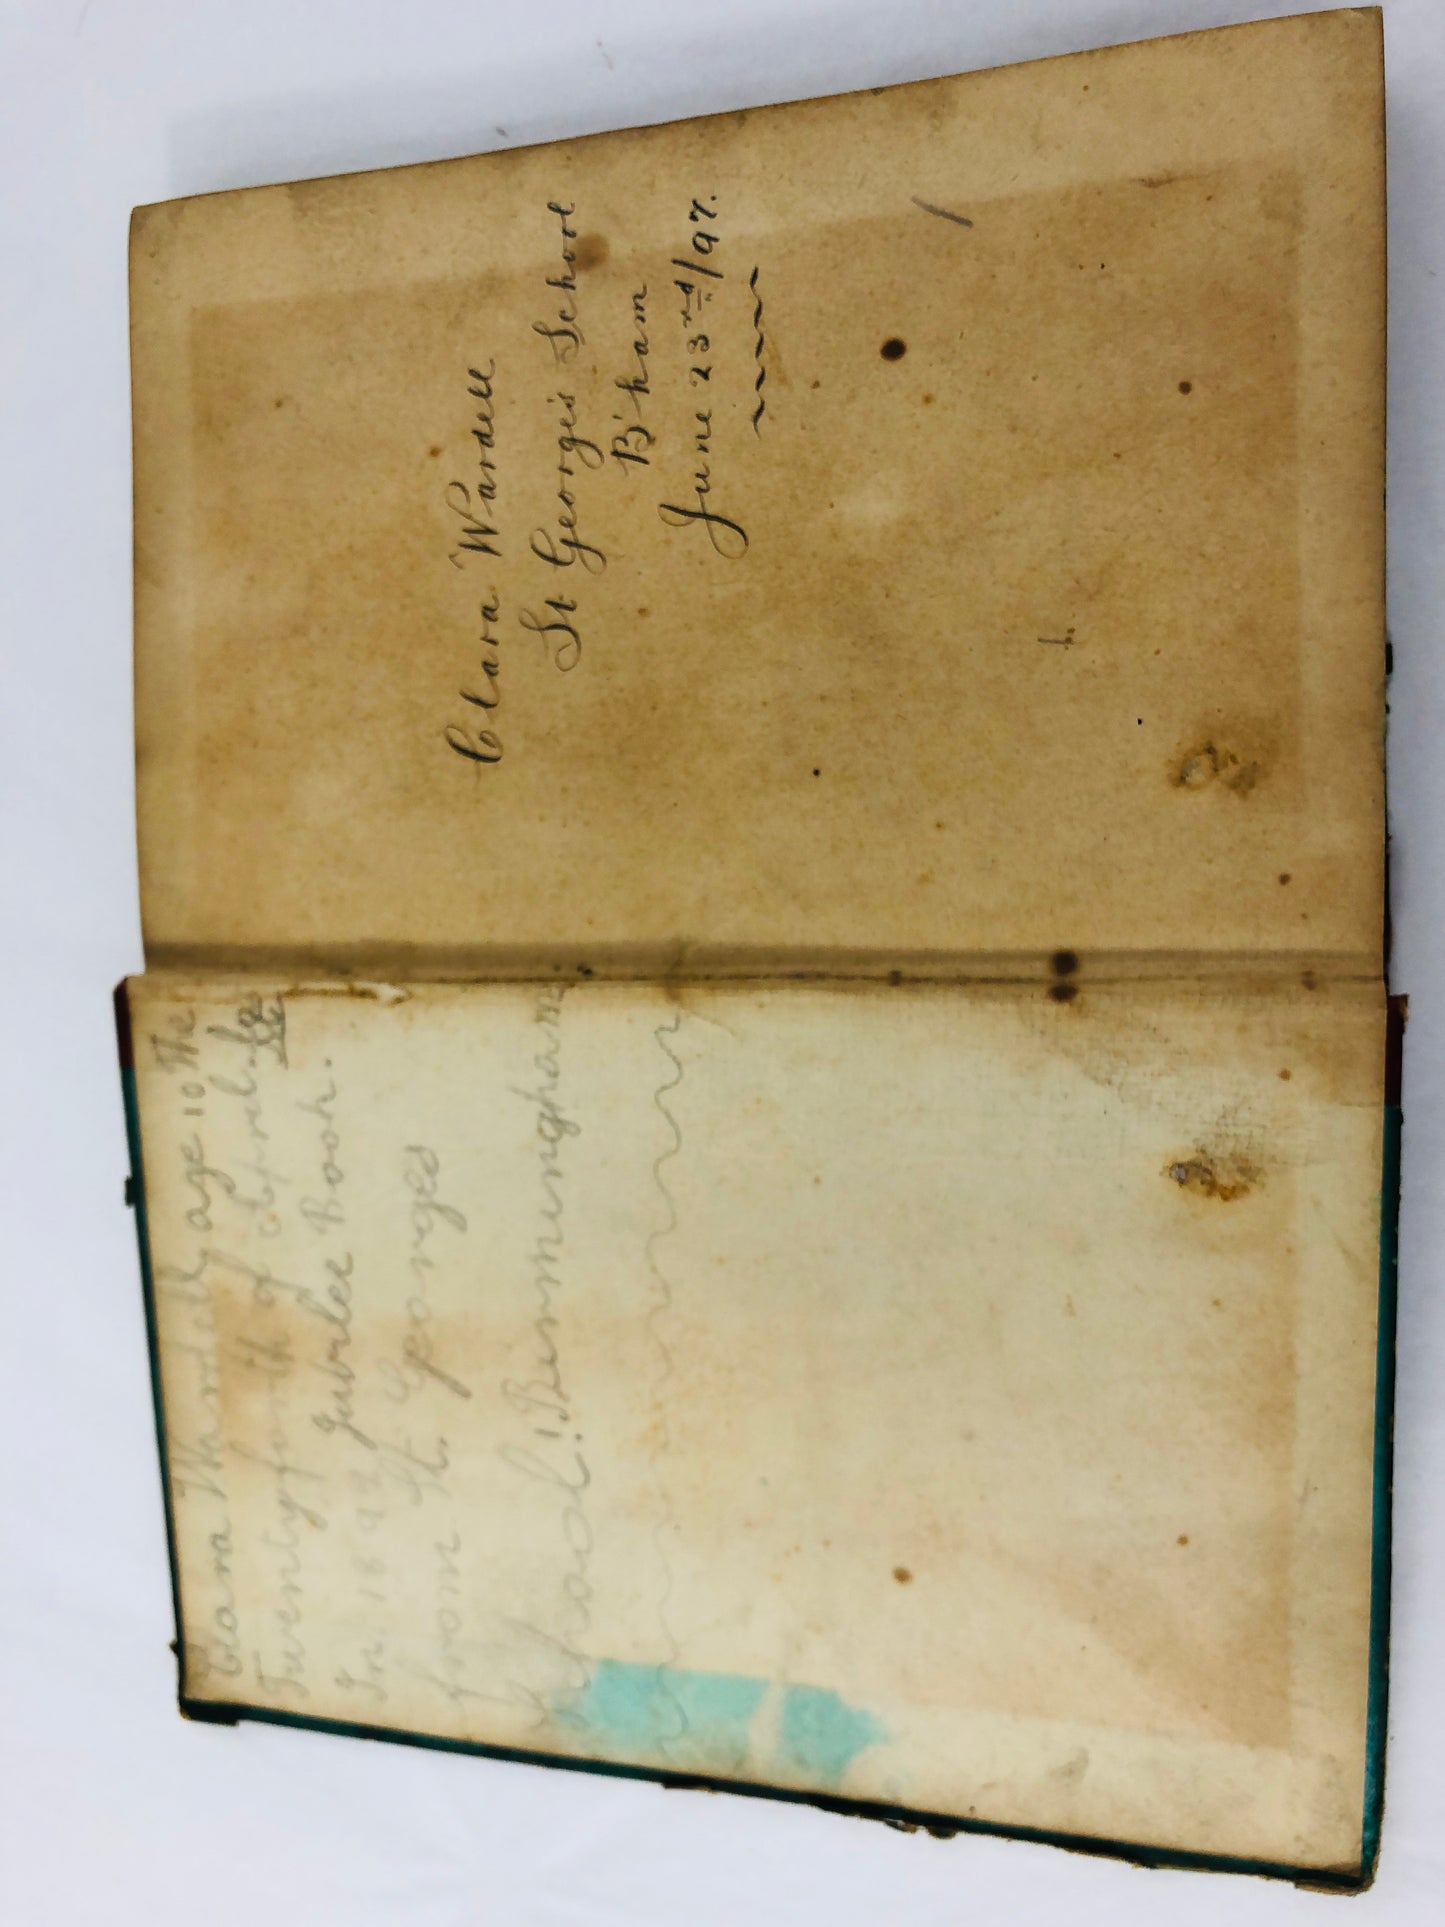 Clara Wardell, age 10 The
Twentyforth of
Jubilee Book.
In. 1897
from St. Georges
School! Bermningham.
Clara Wardell
St George's School
B'ham
June 23rd/97.